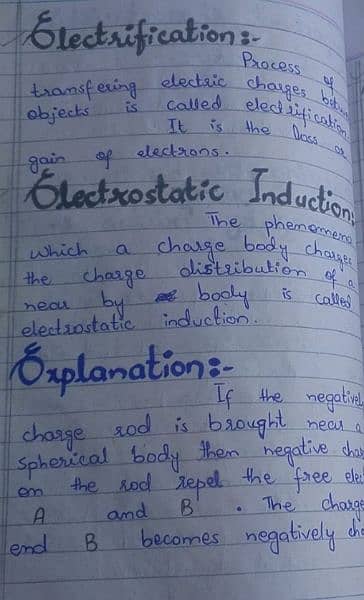 Electrification:-
Process of
transfering electric charges
objects is called electrification
It is the loss or
gain of electrons.
Electrostatic Induction:
The phenomena
which a charge body charges
the charge distribution of a
near by body is called
electrostatic induction.
Explanation:-
If the negatively
charge rod is brought near a
spherical body then negative
on the rod repel the free
A and B . The charge
end B becomes negatively